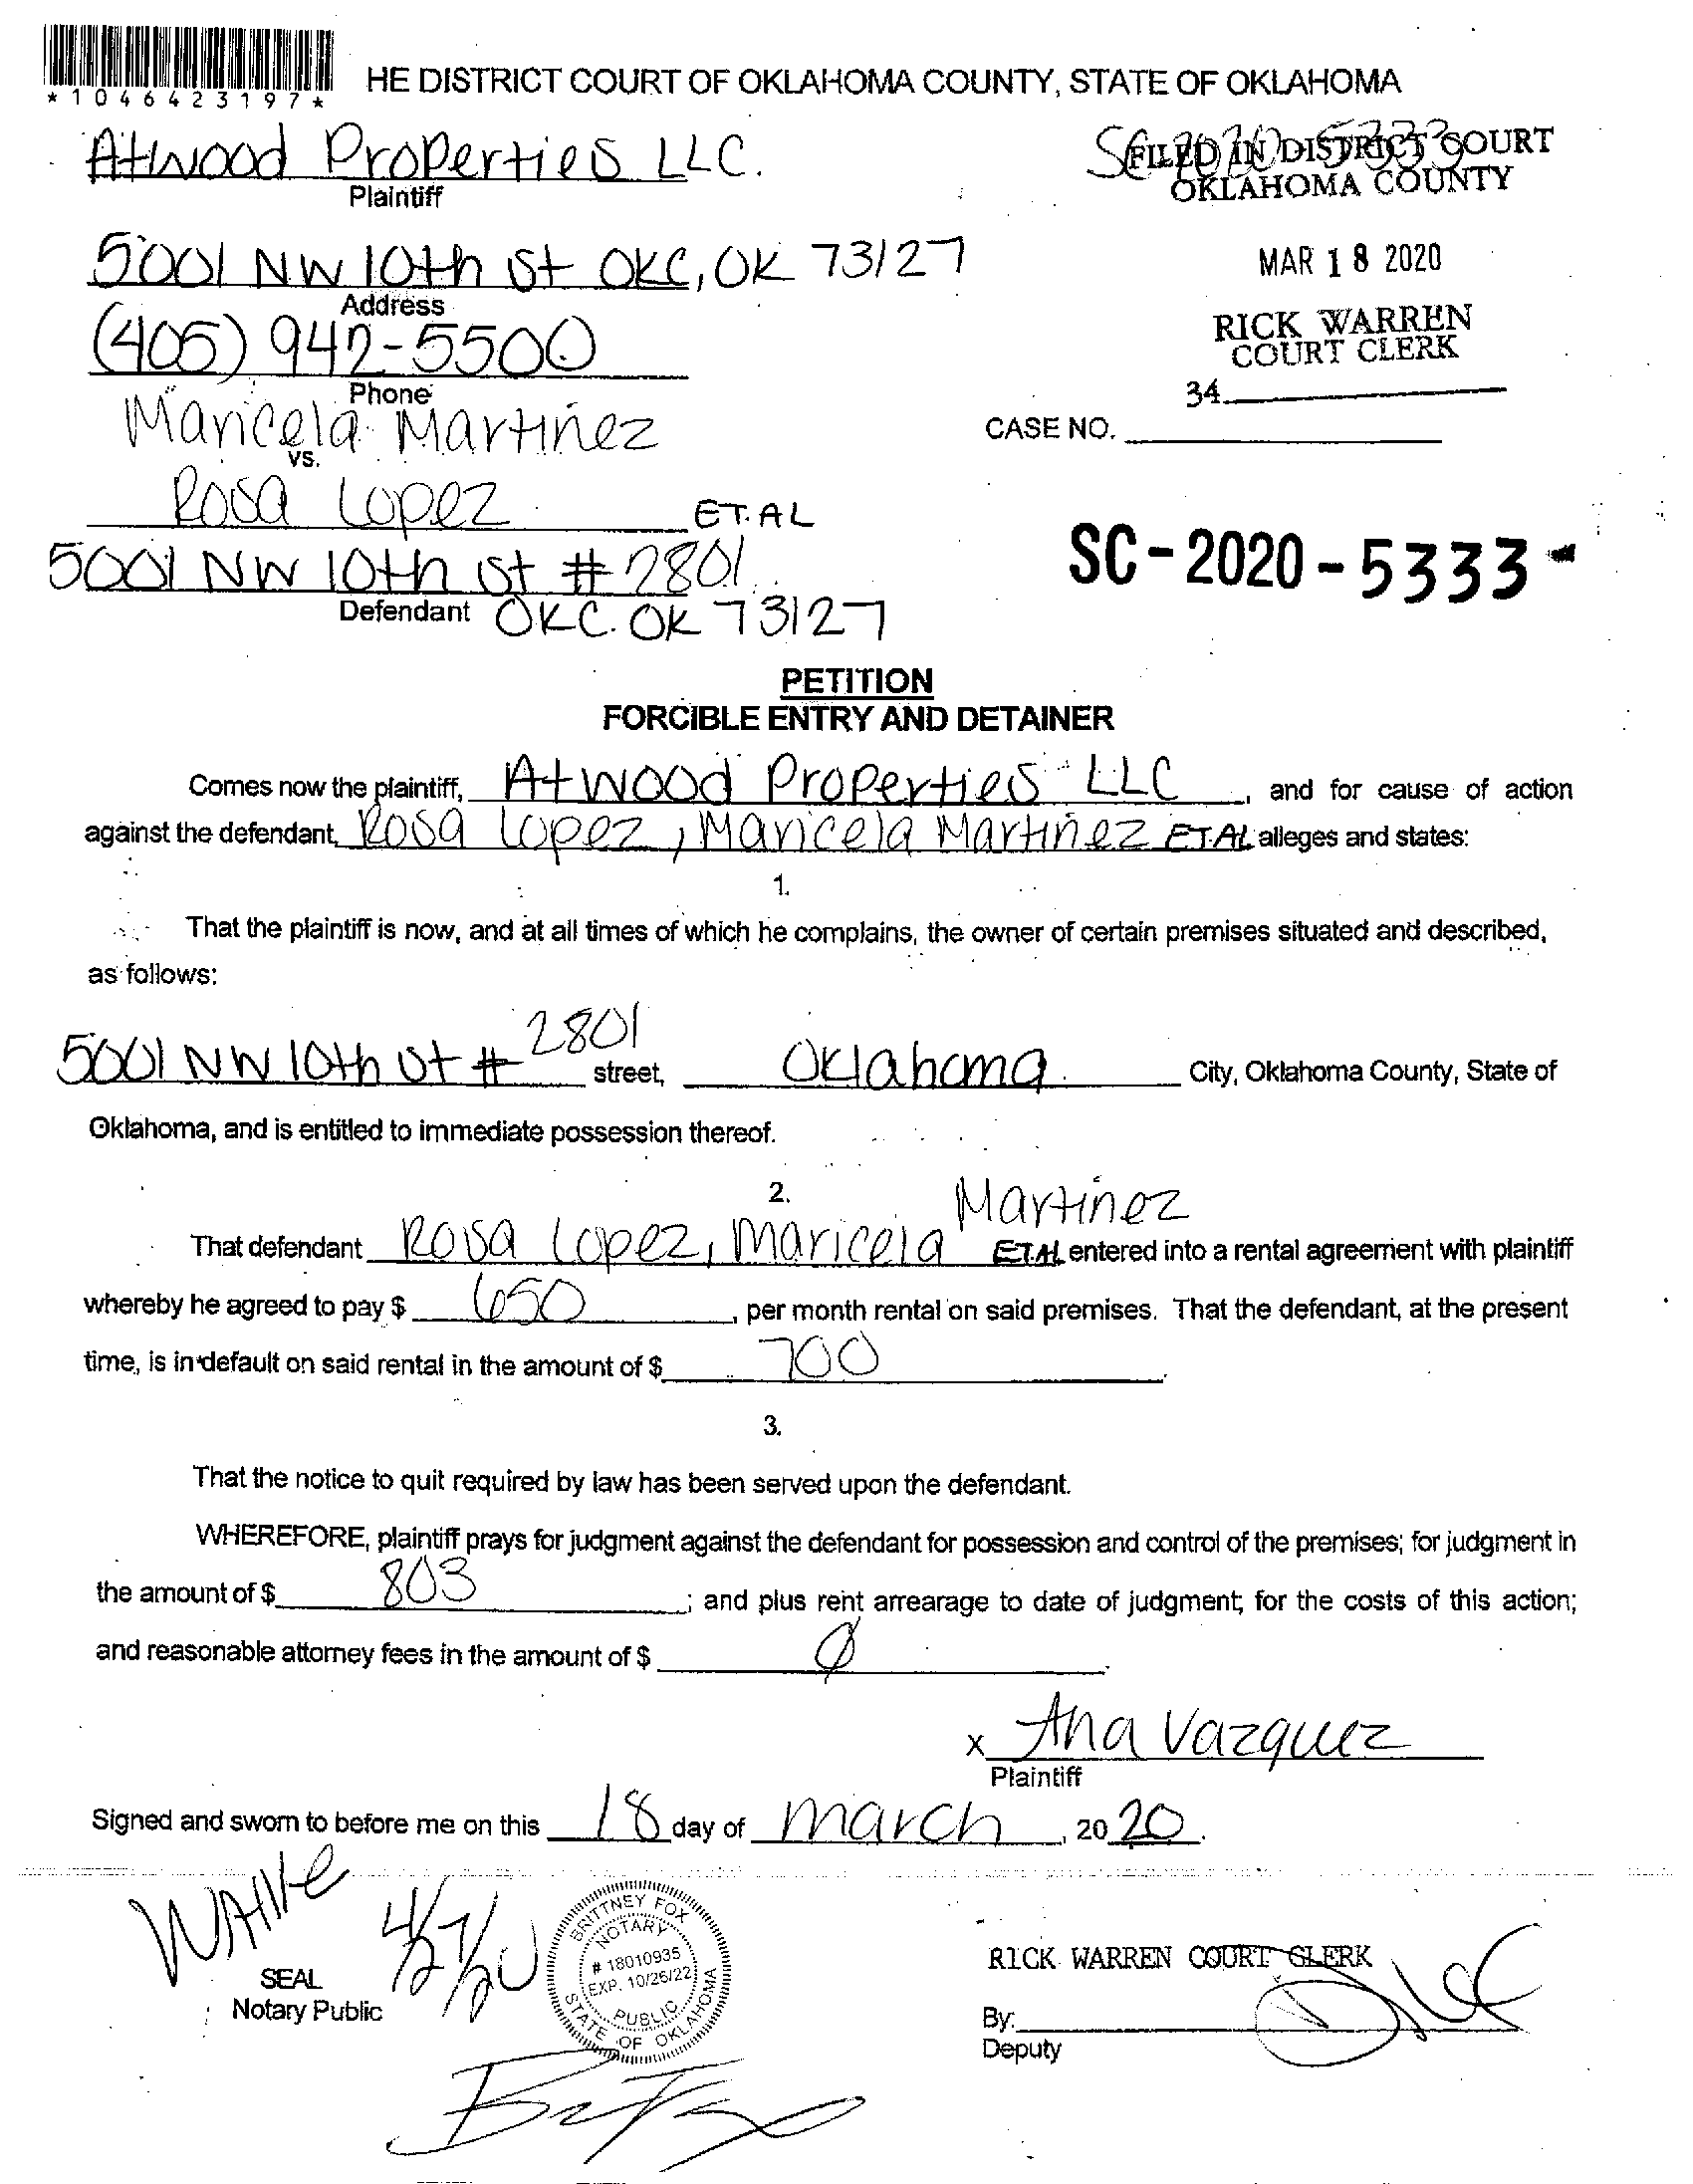 *1046423197*
HE DISTRICT COURT OF OKLAHOMA COUNTY, STATE OF OKLAHOMA
Atwood Properties LLC.
Plaintiff
SC 2020-5333
FILED IN DISTRICT COURT
OKLAHOMA COUNTY
5001 NW 10th St OKC, OK 73127
Address
MAR 18 2020
(405) 942-5500
Phone
RICK WARREN
COURT CLERK
34
Maricela Martinez
vs.
CASE NO.
Rosa Lopez ET.AL
5001 NW 10th St # 2801
Defendant OKC. OK 73127
SC-2020-5333
PETITION
FORCIBLE ENTRY AND DETAINER
Comes now the plaintiff, Atwood Properties LLC, and for cause of action
against the defendant, Rosa Lopez, Maricela Martinez ET.AL alleges and states:
1.
That the plaintiff is now, and at all times of which he complains, the owner of certain premises situated and described,
as follows:
5001 NW 10th St # 2801 street, Oklahoma City, Oklahoma County, State of
Oklahoma, and is entitled to immediate possession thereof.
2.
That defendant Rosa Lopez, Maricela Martinez ET.AL entered into a rental agreement with plaintiff
whereby he agreed to pay $ 650, per month rental on said premises. That the defendant, at the present
time, is in default on said rental in the amount of $ 700.
3.
That the notice to quit required by law has been served upon the defendant.
WHEREFORE, plaintiff prays for judgment against the defendant for possession and control of the premises; for judgment in
the amount of $ 803; and plus rent arrearage to date of judgment; for the costs of this action;
and reasonable attorney fees in the amount of $ Ø.
x Ana Vazquez
Plaintiff
Signed and sworn to before me on this 18 day of March, 2020.
WAIVE 4/27/20
SEAL
Notary Public
BRITTNEY FOX
NOTARY
# 18010935
EXP. 10/26/22
PUBLIC
STATE OF OKLAHOMA
RICK WARREN COURT CLERK
By:
Deputy